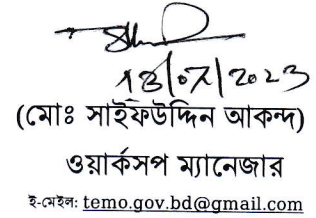 18/07/2023
(মোঃ সাইফউদ্দিন আকন্দ)
ওয়ার্কসপ ম্যানেজার
ই-মেইল: temo.gov.bd@gmail.com